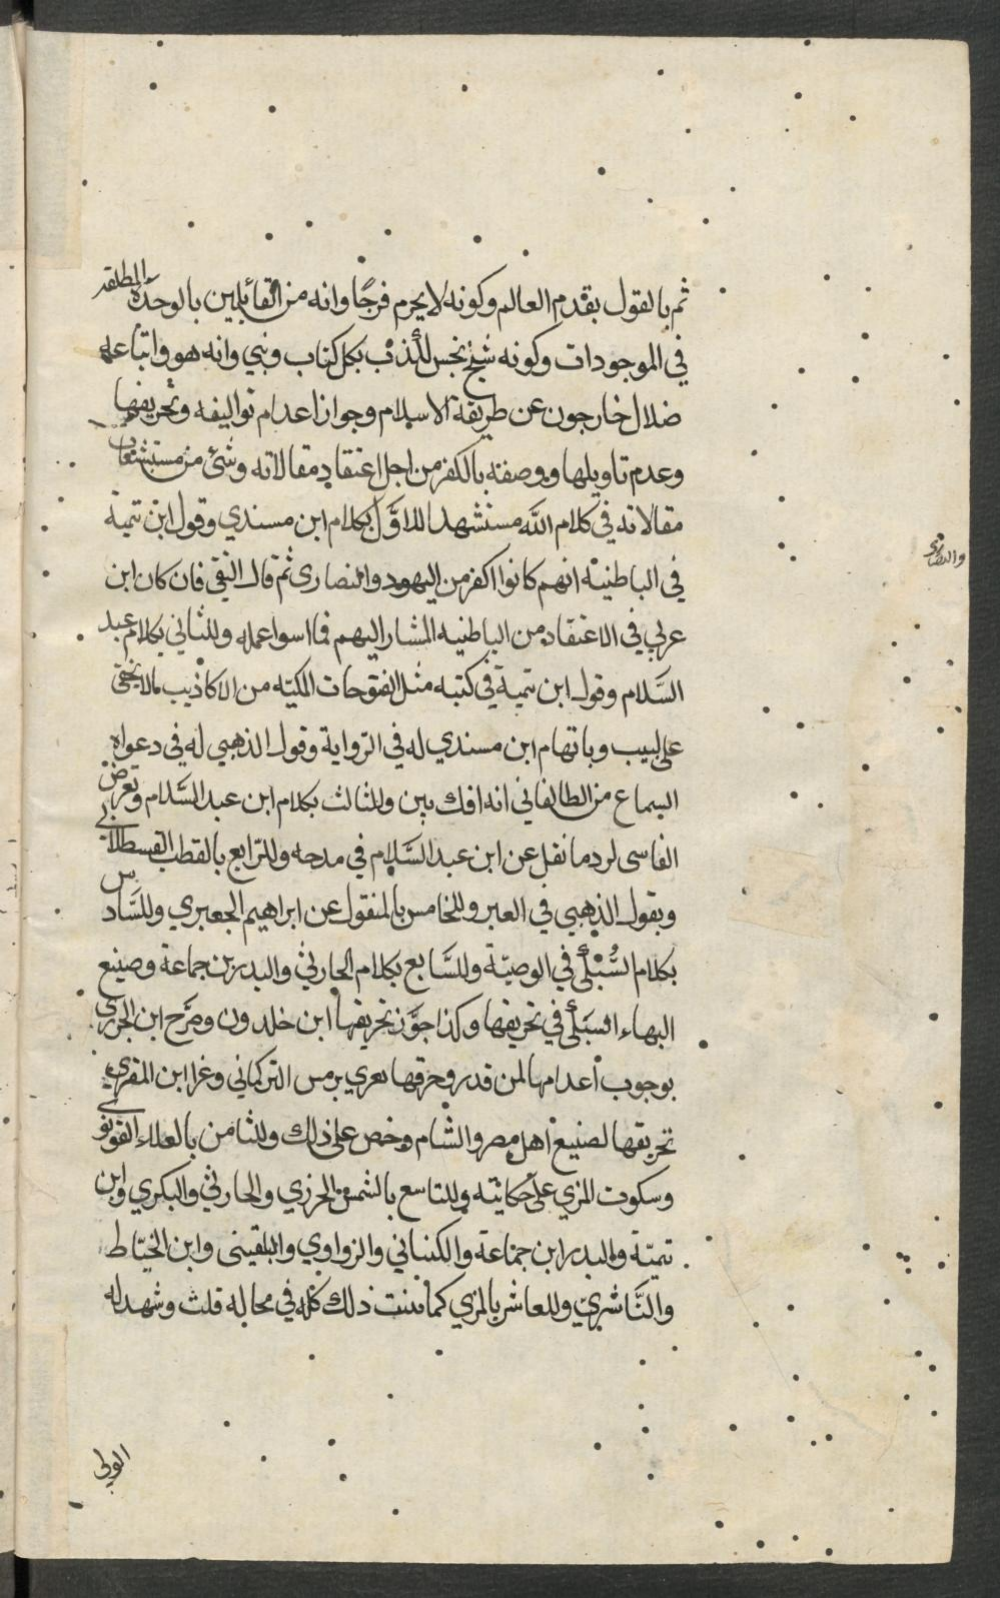 ثم بالقول بقدم العالم وكونه لا يحرم فرجًا وانه من القائلين بالوحدة المطلقة
في الموجودات وكونه شيخ نجس يكذب بكل كتاب ونبي وانه هو واتباعه
ضلال خارجون عن طريقة الاسلام وجواز اعدام تواليفه وتحريفها
وعدم تاويلها ووصفته بالكفر من اجل اعتقاد مقالاته وشئ من مستبشعات
مقالاته في كلام الله مستشهدا للاوَّل بكلام ابن مسندي وقول ابن تيمية
في الباطنية انهم كانوا اكفر من اليهود والنصارى ثم قال التقي فان كان ابن
عربي في الاعتقاد من الباطنيه المشار اليهم فما اسوا عمله وللثاني بكلام عبد
السَّلام وقول ابن تيمية في كتبه مثل الفتوحات المكيّه من الاكاذيب مالا يخفى
على لبيب وباتهام ابن مسندي له في الرواية وقول الذهبي له في دعواه
السماع من الطالقاني انه افك بين وللثالث بكلام ابن عبد السَّلام وتعرض
الفاسى لرد ما نقل عن ابن عبد السَّلام في مدحه وللرّابع بالقطب القسطلاني
وبقول الذهبي في العبر وللخامس بالمنقول عن ابراهيم الجعبري وللسَّادس
بكلام السُّبْكي في الوصيّة وللسَّابع بكلام الحارثي والبدر بن جماعة وصنيع
البهاء السبكي في تحريقها وكذا جوَّز تحريقها ابن خلدون وصَرَّح ابن الجزري
بوجوب اعدامها لمن قدر وحرقها تعري برمس التركماني وعزا ابن المقري
تحريقها لصنيع اهل مصر والشام وحض على ذلك وللثامن بالعلاء القونوي
وسكوت المزي على حكايته وللتاسع بالشمس الجزري والحارثي والبكري وابن
تيميّة والبدر ابن جماعة والكتناني والزواوي والبلقيني وابن الخيّاط
والنَّاشريّ وللعاشر بالمزي كما بينت ذلك كله في محاله قلت وشهد له
الولي
والنصارى